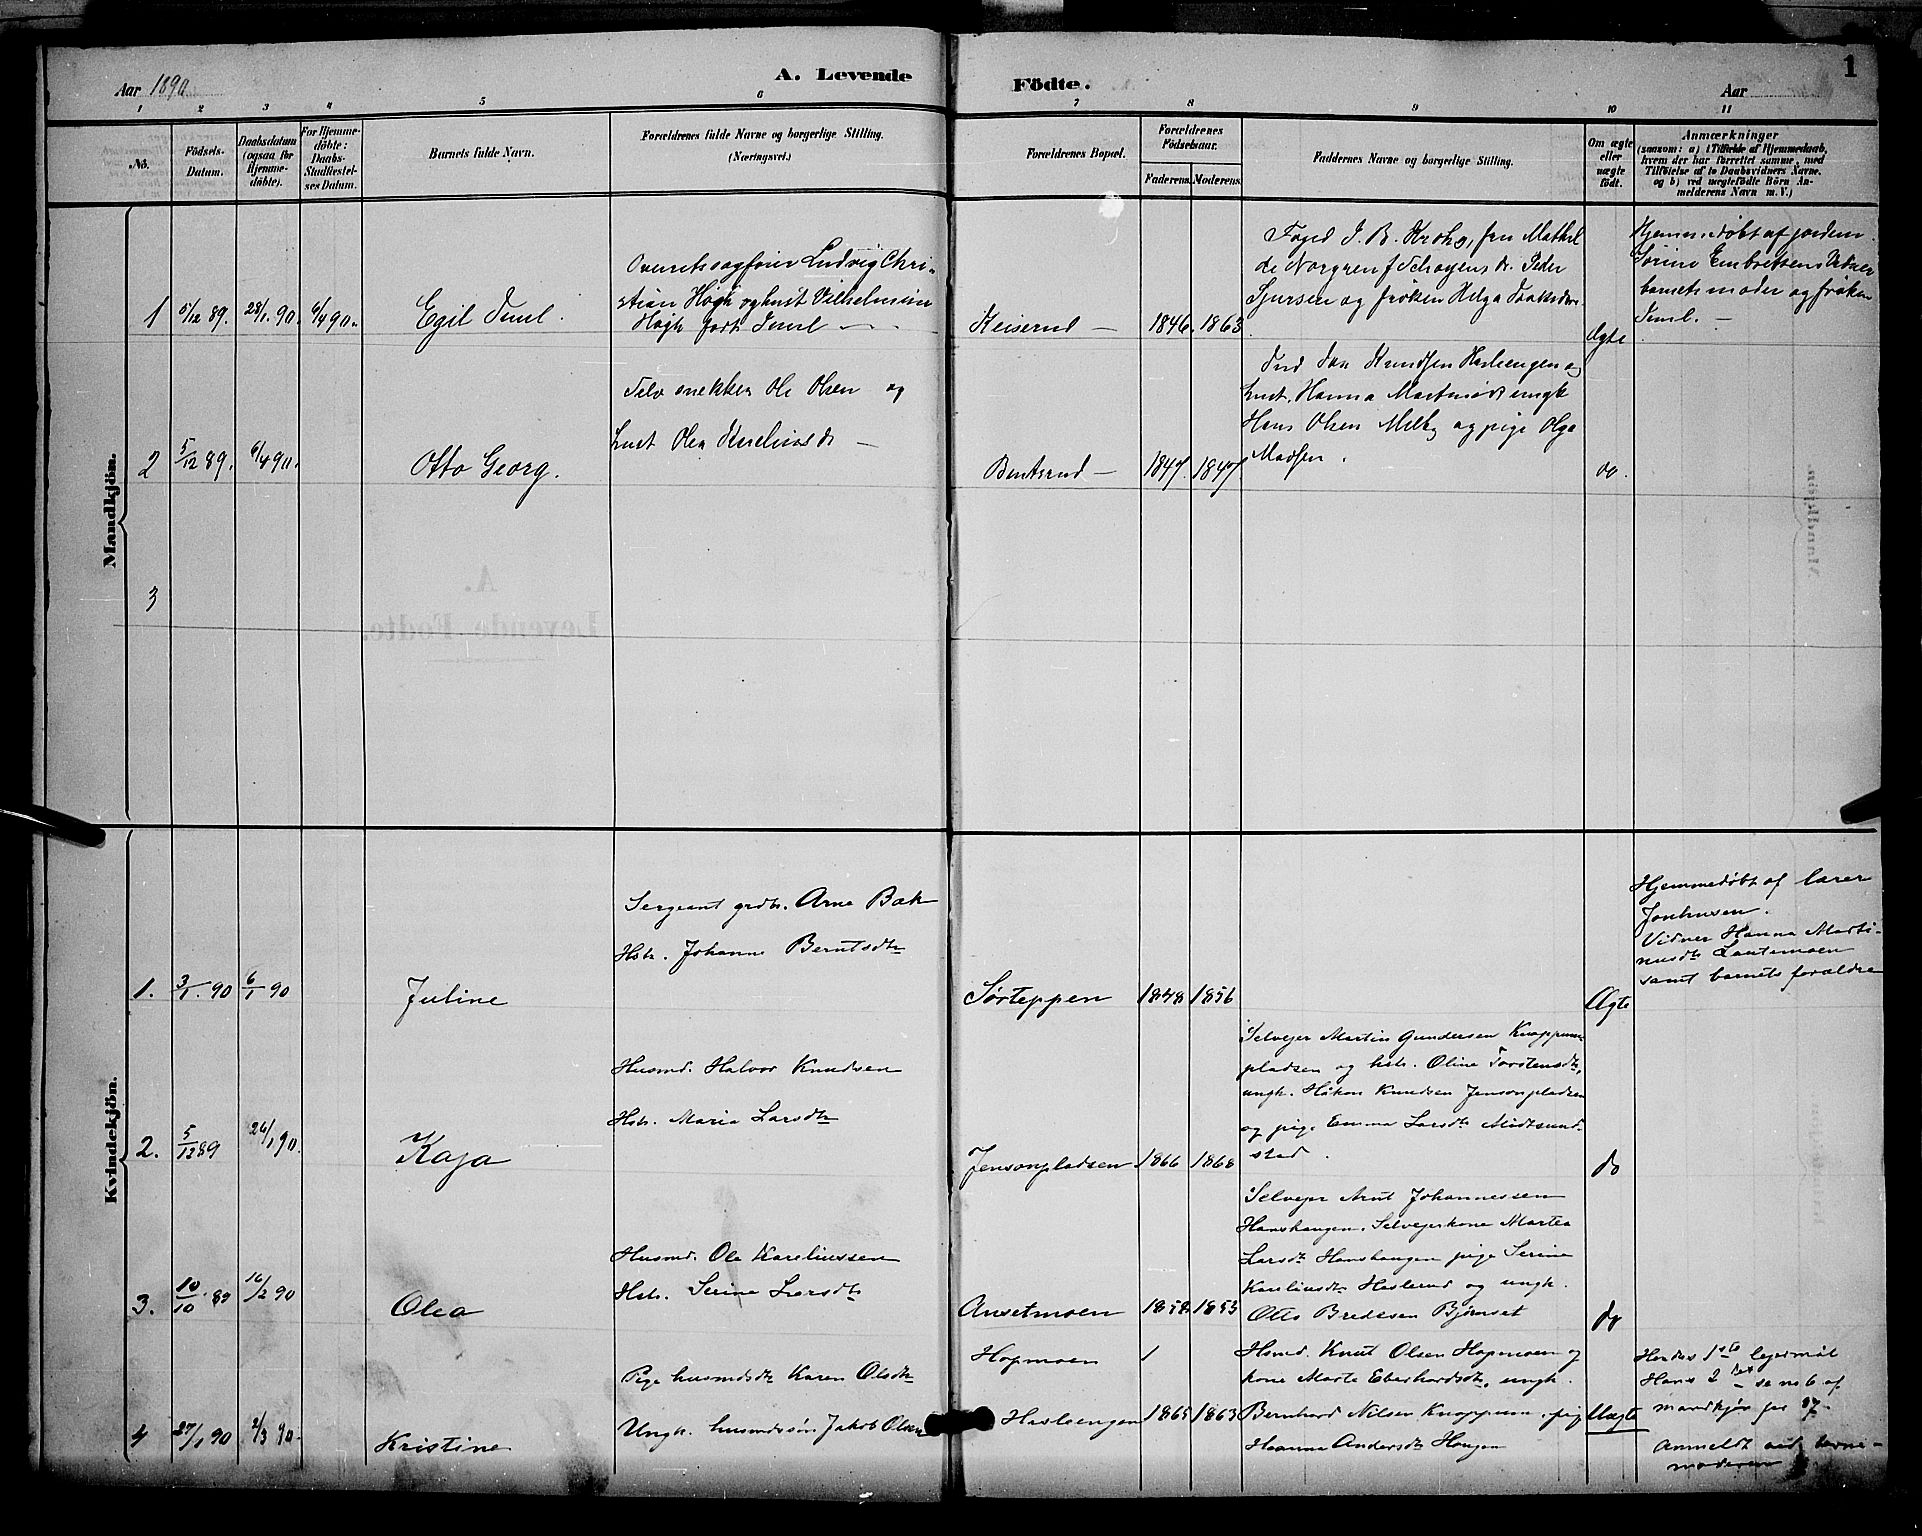 Aar 1890
A. Levende
Födte.
Aar
1
1 2 3 4 5 6 7 8 9 10 11
No.
Födsels-
Datum.
Daabsdatum
(ogsaa for
Hjemme-
döbte).
For Hjemme-
döbte:
Daabs-
Stadfæstel-
ses Datum.
Barnets fulde Navn.
Forældrenes fulde Navne og borgerlige Stilling.
(Næringsvei.)
Forældrenes Bopæl.
Forældrenes
Födselsaar.
Faderens. Moderens.
Faddernes Navne og borgerlige Stilling.
Om ægte
eller
uægte
födt.
Anmærkninger
(saasom: a) i Tilfælde af Hjemmedaab,
hvem der har forrettet samme, med
Tilföielse af to Daabsvidners Navne.
og b) ved uægtefödte Börn An-
melderens Navn m. V.)
Mandkjön.
1 5/12 89. 28/1 90. 6/4 90.
Egil
Overretssagfører Ludvig Chri-
stian Høgh og hust Vilhelmine
Høgh født
Keiserud —
1846. 1863
Foged J. B. Krohg, fru Mathil
de Norgren
Sjursen og frøken Helga
Ægte
Hjemmedøbt af jordem.
Sørine Embretsen Vidner
barnets moder og frøken
2 5/12 89. 6/4 90.
Otto Georg.
Selv snekker Ole Olsen og
hust Olea Kareliusd —
Bentsrud —
1847. 1847.
Knudsen Haslengen og
hust. Hanna ungk
Hans Olsen Melby og pige Olga
Madsen.
do.
3
Kvindekjön.
1. 3/1. 90 6/1 90
Juline
Sergeant grdbr. Arne Bak
Hstr. Johanne Berntsdtr
Sørteppen
1848 1856
Ægte
Hjemmedøbt af lærer
Vidner Hanna Marti-
nusdtr
samt barnets forældre
2. 5/12 89 26/1 90.
Kaja
Husmd. Halvor Knudsen
Hstr. Maria Larsdtr
Jensonpladsen
1866 1868
Selvejer Martin Gundersen Knoppum-
pladsen og hstr. Oline Torstensdtr,
ungk. Håkon Knudsen Jensonpladsen
og pige Emma Larsdtr Midtsund-
stad.
do
3. 10/10 89 16/2 90
Olea
Husmd. Ole Kareliussen
Hstr. Serine Larsdtr
Ansetmoen
1858. 1853
Selvejer Arnt Johannessen
Hanshaugen. Selvejerkone Martea
Larsdtr Hanshaugen pige Serine
Kareliusdtr Haslerud og ungk.
Otto Bredesen Bjørnsat
do
4 27/1 90 2/3 90.
Kristine
Pige husmdsdtr Karen Olsdtr
Ungk. husmdssøn Jakob Olsen
Hopmoen
Haslengen
1865 1863
Hsmd. Knut Olsen Hopmoen og
kone Marte Eberhardsdtr, ungk.
Bernhard Nilsen Knoppum, pige
Hanna Andersdtr Haugen
Uægte
Hendes 1ste lejermål
Hans 2det se no 6 af
mandkjøn for 87.
Anmeldt ved barne-
moderen